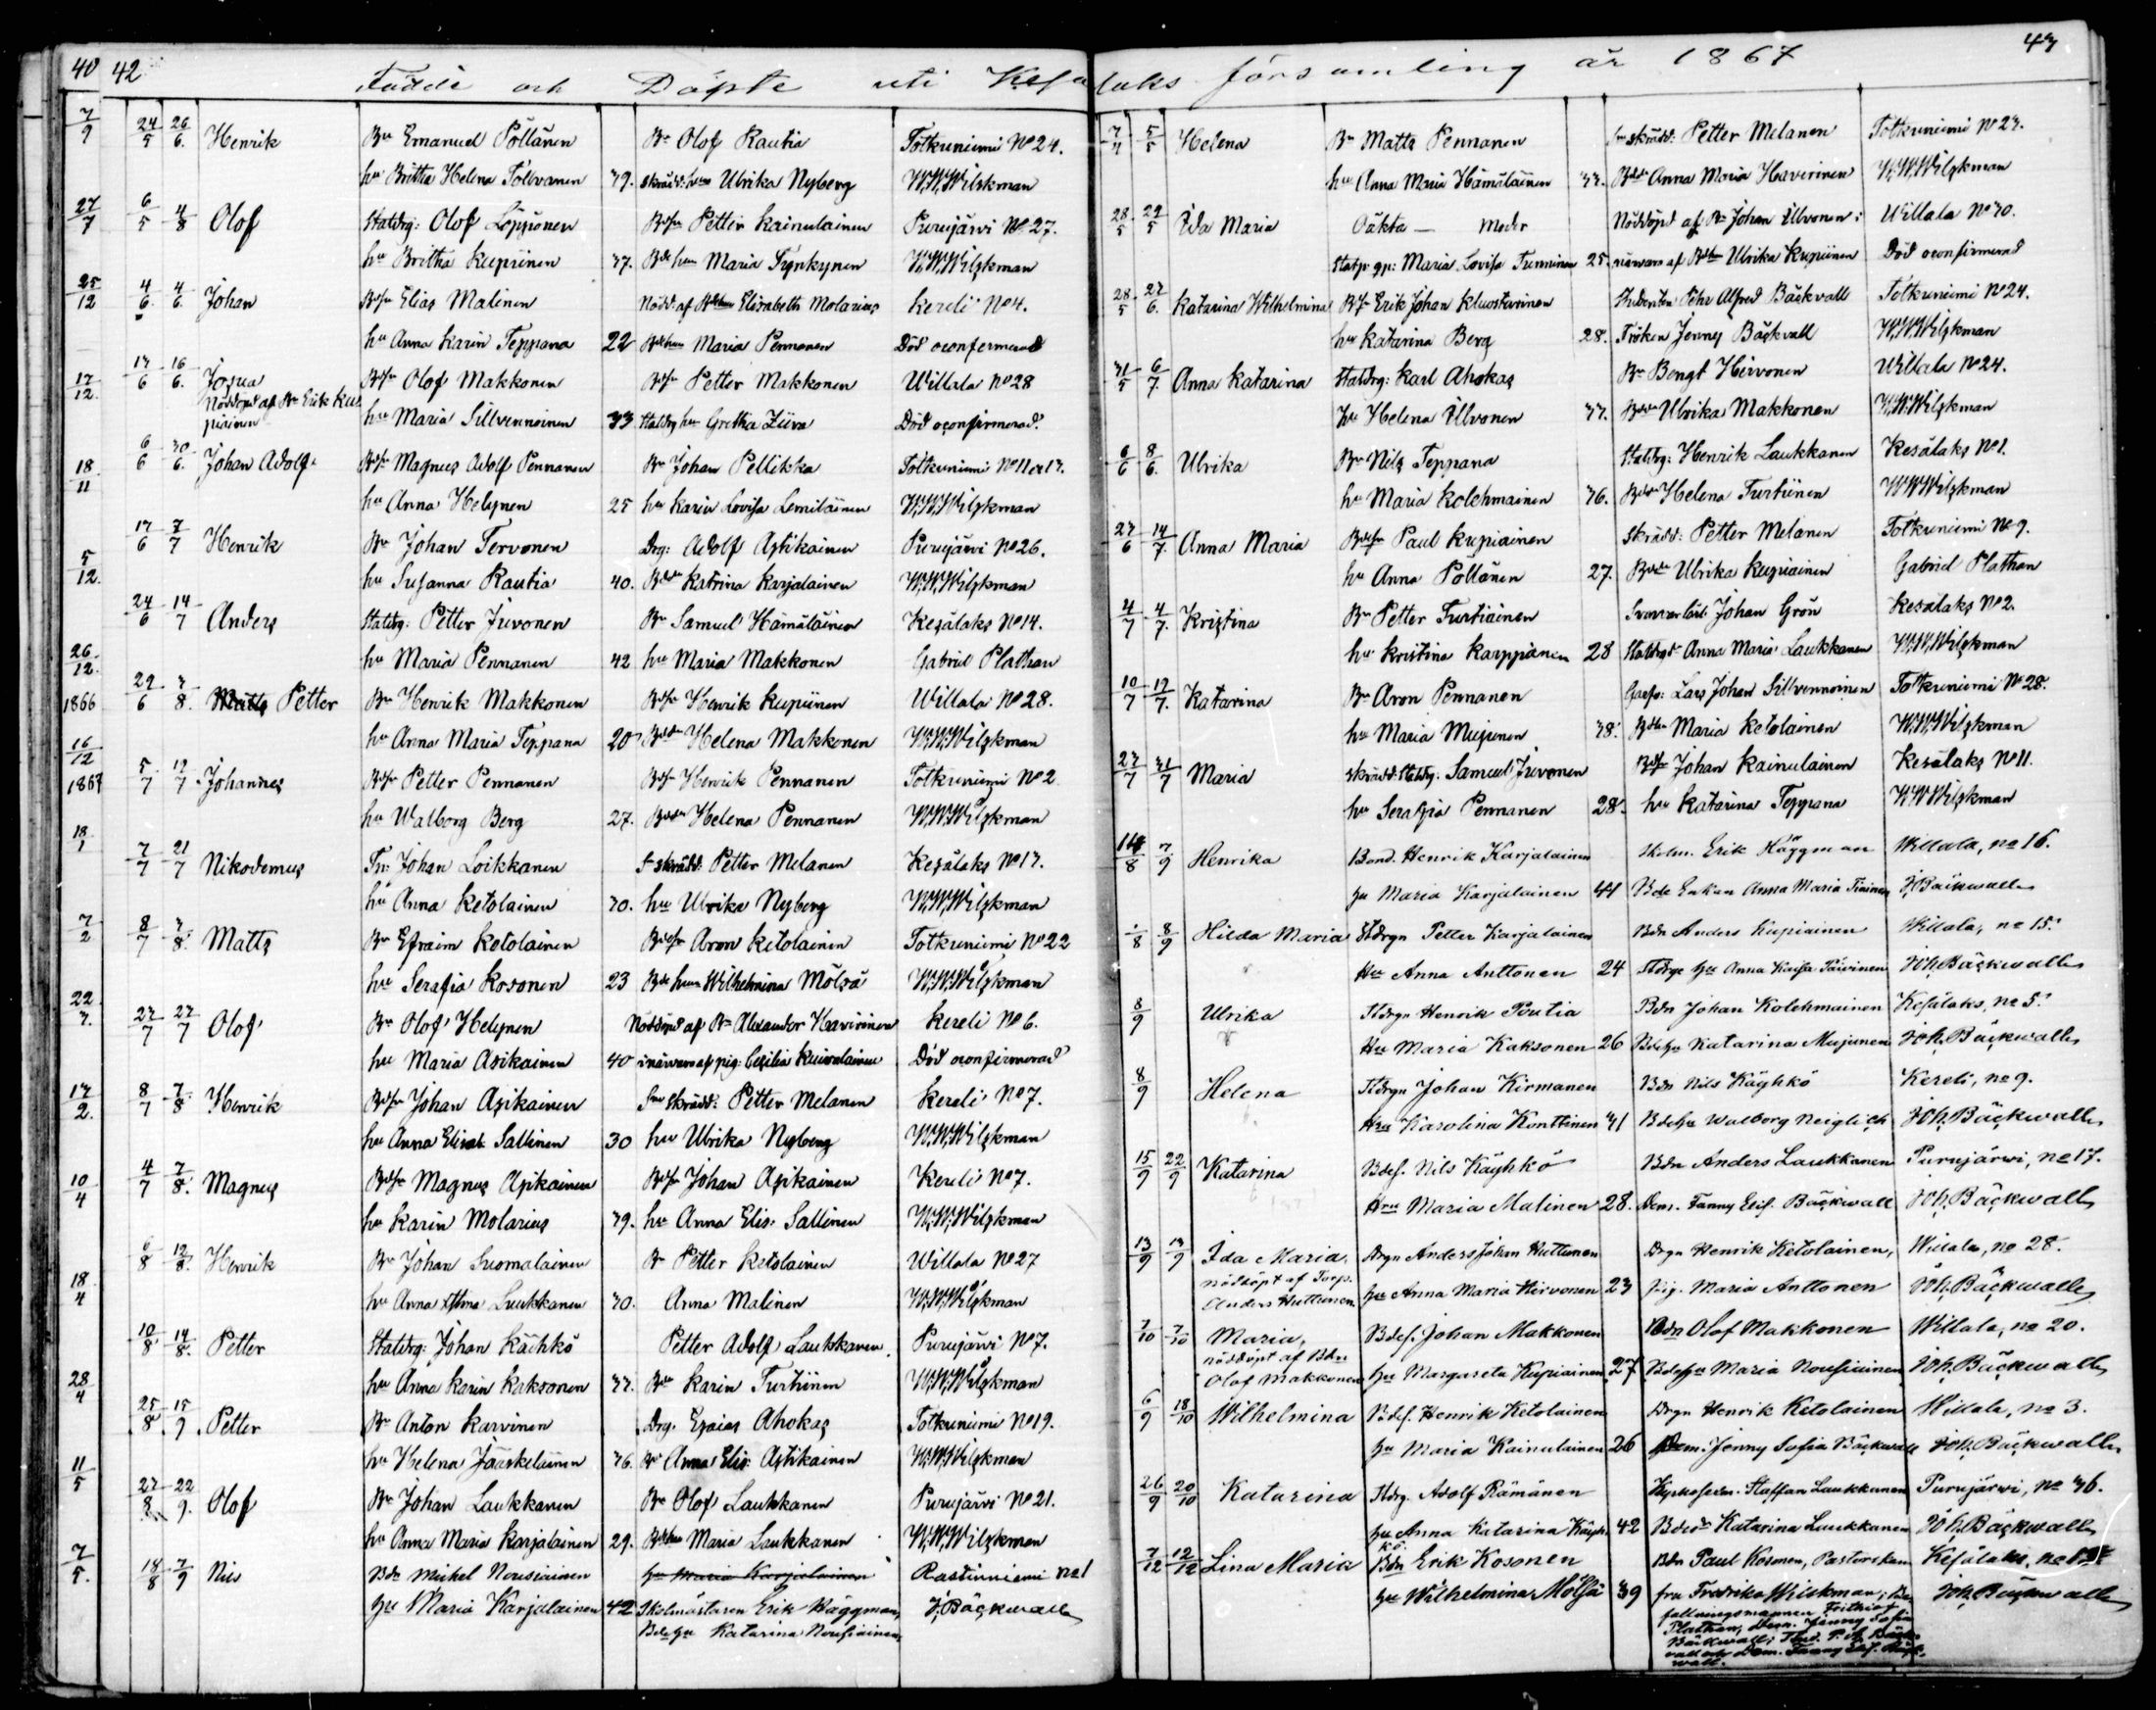 40 42 Födde och Döpte uti Kesälaks församling år 1867 43
7/9
24/5 26/6. Henrik Bn Emanuel Pöllänen Bn Olof Rautia Totkuniemi No 24.
hu Britha Helena Tolvanen 39. skrädd: hun Ulrika Nyberg W:W:Wilskman
27/7 6/5 4/8 Olof Statdrg: Olof Löppönen Bdsn Petter Kainulainen Purujärvi No 27.
hu Britha Kupiinen 37. Bde hun Maria Tynkynen W:W:Wilskman
25/12 4/6. 4/6. Johan Bdsn Elias Malinen Nödd af Bdehun Elisabeth Molarius Kereli No 4.
hu Anna Karin Teppana 22 Bdehun Maria Pennanen Död oconfirmerad
17/12. 13/6 16/6. Josua Bdsn Olof Makkonen Bdsn Petter Makkonen Willala No 28
Nöddopd af Bn Erik Kupiainen hu Maria Sillvennoinen 33 Statdrg hun Gretha Ziiva Död oconfirmerad.
18/11 6/6 30/6. Johan Adolf Bdsn Magnus Adolf Pennanen Bn Johan Pellikka Totkuniemi No 11 o 13.
hu Anna Helynen 25 hu Karin Lovisa Lemiläinen W:W:Wilskman
5/12. 13/6 7/7 Henrik Bn Johan Tervonen Drg: Adolf Asikainen Purujärvi No 26.
hu Susanna Rautia 40. Bdedr Katrina Karjalainen W:W:Wilskman
26/12. 24/6 14/7 Anders Statdrg: Petter Juvonen Bn Samuel Hämäläinen Kesälaks No 14.
hu Maria Pennanen 42 hu Maria Makkonen Gabriel Plathan
1866 29/6 3/8. Petter Bn Henrik Makkonen Bdsn Henrik Kupiinen Willala No 28.
16/12 hu Anna Maria Teppana 20 Bdedr Helena Makkonen W:W:Wilskman
1867 5/7 12/7 Johannes Bdsn Petter Pennanen Bdsn Henrik Pennanen Totkuniemi No 2
hu Walborg Berg 27. Bdedr Helena Pennanen W:W:Wilskman
18/1 7/7 21/7 Nikodemus Tr: Johan Loikkanen S skrädd: Petter Melanen Kesälaks No 13.
hu Anna Ketolainen 30. hu Ulrika Nyberg W:W:Wilskman
7/2 8/7 3/8. Matts Bn Efraim Ketolainen Bdesn Aron Ketolainen Totkuniemi No 22
hu Serafia Kosonen 23 Bde hun Wilhelmina Mölsä W:W:Wilskman
22/3. 23/7 27/7 Olof Bn Olof Helynen Nöddopd af Bn Alexander Havirinen Kereli No 6.
hu Maria Asikainen 40 i närvaro af pig: Cecilia Kuivalainen Död oconfirmerad
13/2. 8/7 7/8 Henrik Bdsn Johan Asikainen Sn skrädd: Petter Melanen Kereli No 7.
hu Anna Elisab Sallinen 30 hu Ulrika Nyberg W:W:Wilskman
10/4 4/7 7/8. Magnus Bdsn Magnus Asikainen Bdsn Johan Asikainen Kereli No 7.
hu Karin Molarius 39. hu Anna Elis: Sallinen W:W:Wilskman
18/4 6/8 12/8. Henrik Bn Johan Suomalainen Bn Petter Ketolainen Willala No 27
hu Anna Laukkanen 30. Anna Malinen W:W:Wilskman
28/4 10/8 14/8. Petter Statdrg: Johan Käihkö Petter Adolf Laukkanen. Purujärvi No 7.
hu Anna Karin Kaksonen 33. Bdr Karin Turtiinen W:W:Wilskman
25/8 15/9 Petter Bn Anton Karvinen Drg. Esaias Ahokas Totkuniemi No 19.
11/5 hu Helena Jääskeläinen 36. Bn Anna Elis: Asikainen W:W:Wilskman
27/8 22/9. Olof Bn Johan Laukkanen Bn Olof Laukkanen Purujärvi No 21.
hu Anna Maria Karjalainen 29. Bdehun Maria Laukkanen W:W:Wilskman
7/5. 18/8 7/9 Nils Bdn Mickel Nousiainen hu Maria Karjalainen Rastinniemi no 1
hu Maria Karjalainen 42 Skolmästaren Erik Häggman, J. Bäckwall
Bdehu Katarina Nousiainen
7/4 5/5 Helena Bn Matts Pennanen Sn skrädd: Petter Melanen Totkuniemi No 23.
hu Anna Maria Hämäläinen 33. Bdedr Anna Maria Havirinen W:W:Wilskman
28/5 29/5 Ida Maria Oäkta — Moder Nöddöpd af Bn Johan Ulvonen i Willala No 30.
Statp gp: Maria Lovisa Tunninen 25. närvaro af Bdehn Ulrika Kupiinen Död oconfirmerad
28/5 27/6. Katarina Wilhelmina Bdsn Erik Johan Kluostarinen Studenten Pehr Alfred Bäckvall Totkuniemi No 24.
hu Katarina Berg 28. Fröken Jenny Bäckvall W:W:Wilskman
31/5 6/7. Anna Katarina Statdrg: Karl Ahokas Bn Bengt Hirvonen Willala No 24.
hu Helena Ulvonen 37. Bdedr Ulrika Makkonen W:W:Wilskman
6/6 8/6. Ulrika Bn Nils Teppana Statdrg: Henrik Laukkanen Kesälaks No 1.
hu Maria Kolehmainen 36. Bdedr Helena Turtiinen W:W:Wilskman
27/6 14/7. Anna Maria Bdesn Paul Kupiainen Skrädd: Petter Melanen Totkuniemi No 9.
hu Anna Pöllänen 27. Bdedr Ulrika Kupiainen Gabriel Plathan
4/7 4/7. Kristina Bn Petter Turtiainen Johan Grön Kesälaks No 2.
hu Kristina Karppanen 28 Statdrgdr Anna Maria Laukkanen W:W:Wilskman
10/7 19/7. Katarina Bn Aron Pennanen Lars Johan Sillvennoinen Totkuniemi No 28.
hu Maria Mujunen 38. Bdehn Maria Ketolainen W:W:Wilskman
27/7 31/7 Maria skrädd: Statdrg: Samuel Juvonen Bdsn Johan Kainulainen Kesälaks No 11.
hu Serafia Pennanen 28. hu Katarina Teppana W:W:Wilskman
14/8 7/9 Henrika Bond. Henrik Karjalainen Skolm. Erik Häggman Willala, no 16.
hu Maria Karjalainen 44 Bde Enkan Anna Maria Tiainen J. Bäckwall
1/8 8/9 Hilda Maria Stdrgn Petter Karjalainen Bdn Anders Kupiainen Willala, no 15.
Hu Anna Anttonen 24 Stdrgs hu Anna Kaisa Päivinen Joh. Bäckwall
8/9 Ulrika Stdrgn Henrik Poutia Bdn Johan Kolehmainen Kesälaks, no 5.
Hu Maria Kaksonen 26 Bdehu Katarina Mujunen Joh. Bäckwall
8/9 Helena Stdrgn Johan Kirmanen Bdn Nils Käyhkö Kereli, no 9.
Hu Karolina Konttinen 31 Bdehu Walborg Neiglich Joh. Bäckwall
15/9 22/9 Katarina Bdes. Nils Käyhkö Bdn Anders Laukkanen Purujärwi, no 17.
Hu Maria Malinen 28. Dem. Fanny Elis. Bäckwall Joh. Bäckwall
13/9 13/9 Ida Maria, Drgn Anders Johan Huttunen Drgn Henrik Ketolainen, Willala, no 28.
nödöpt af Torp. Anders Huttunen hu Anna Maria Hirvonen 23 Pig. Maria Anttonen Joh. Bäckwall
7/10 7/10 Maria, Bdes. Johan Makkonen Bdn Olof Makkonen Willala, no 20.
nöddöpt af Bdn Olof Makkonen hu Margareta Kupiainen 27 Bdehu Maria Nousiainen Joh. Bäckwall
6/9 18/10 Wilhelmina Bdes. Henrik Ketolainen Drgn Henrik Ketolainen Willala, no 3.
hu Maria Kainulainen 26 Dem. Jenny Sofia Bäckwall Joh. Bäckwall
26/9 20/10 Katarina Stdrg. Adolf Rämänen Staffan Laukkanen Purujärwi, no 36.
hu Anna Katarina Käyhkö 42 Bdedr Katarina Laukkanen Joh. Bäckwall
7/12 12/12 Lina Maria Bdn Erik Kosonen Bdn Paul Kosonen, Pastorskan Kesälaks, no
hu Wilhelmina Mölsä 39 fru Fredrika Wilskman; Befallningsmannen Frithiof Joh. Bäckwall
Plathan, Dem. Jenny Sofia
Bäckwall; Stud. P. A. Bäckwall och Dem. Fanny Elis. Bäckwall.